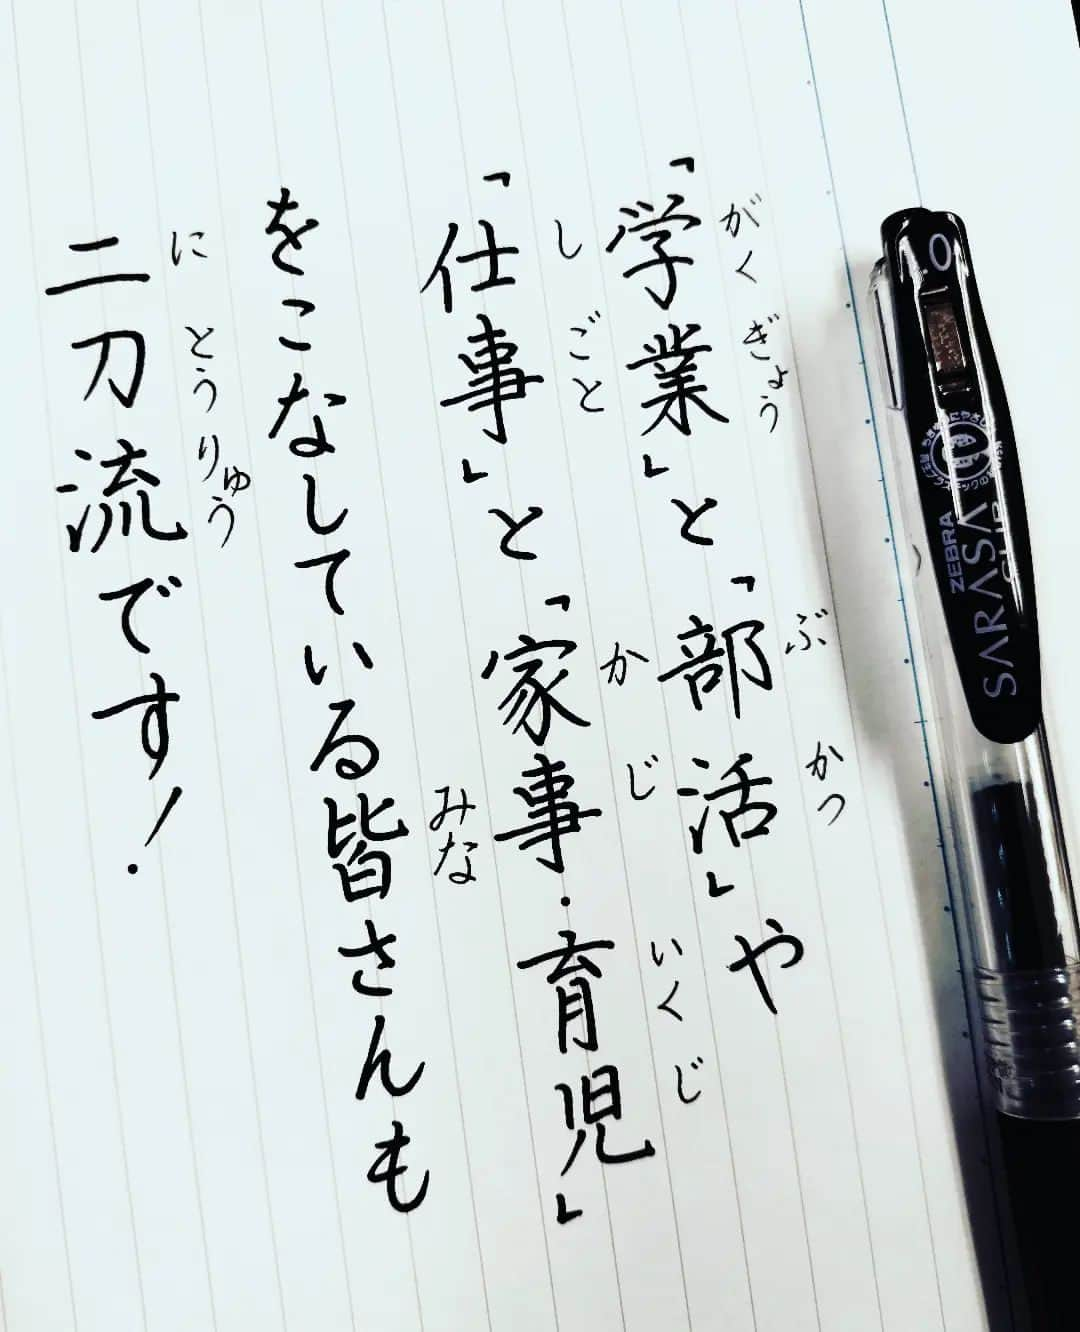 「学業」と「部活」や
がくぎょう ぶかつ
「仕事」と「家事・育児」
しごと かじ いくじ
をこなしている皆さんも
みな
二刀流です!
にとうりゅう
1.0
ZEBRA
SARASA
CLIP